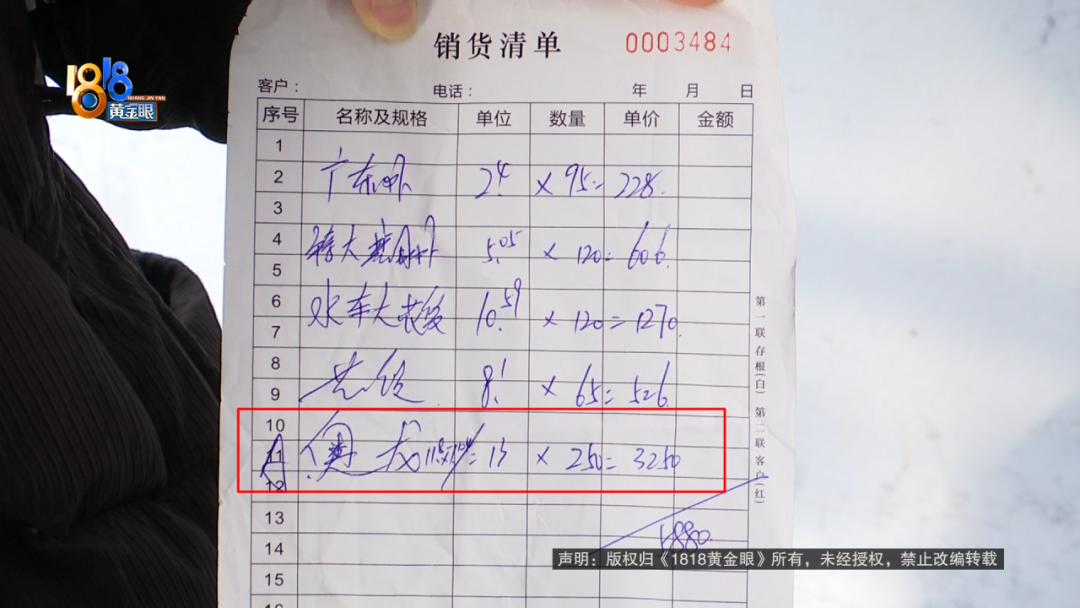 1818
HUANG JIN YAN
黄金眼
销货清单 0003484
客户: 电话: 年 月 日
序号 名称及规格 单位 数量 单价 金额
1
2 广东虾 2.4 × 95= 228.
3
4 特大 5.05 × 120= 606.
5
6 水车大 10.59 × 120= 1270.
7
8
9 8.1 × 65= 526.
10
11 奥龙 = 13 × 250= 3250
12
13
14
15
第一联存根(白) 第二联客户(红)
声明:版权归《1818黄金眼》所有,未经授权,禁止改编转载